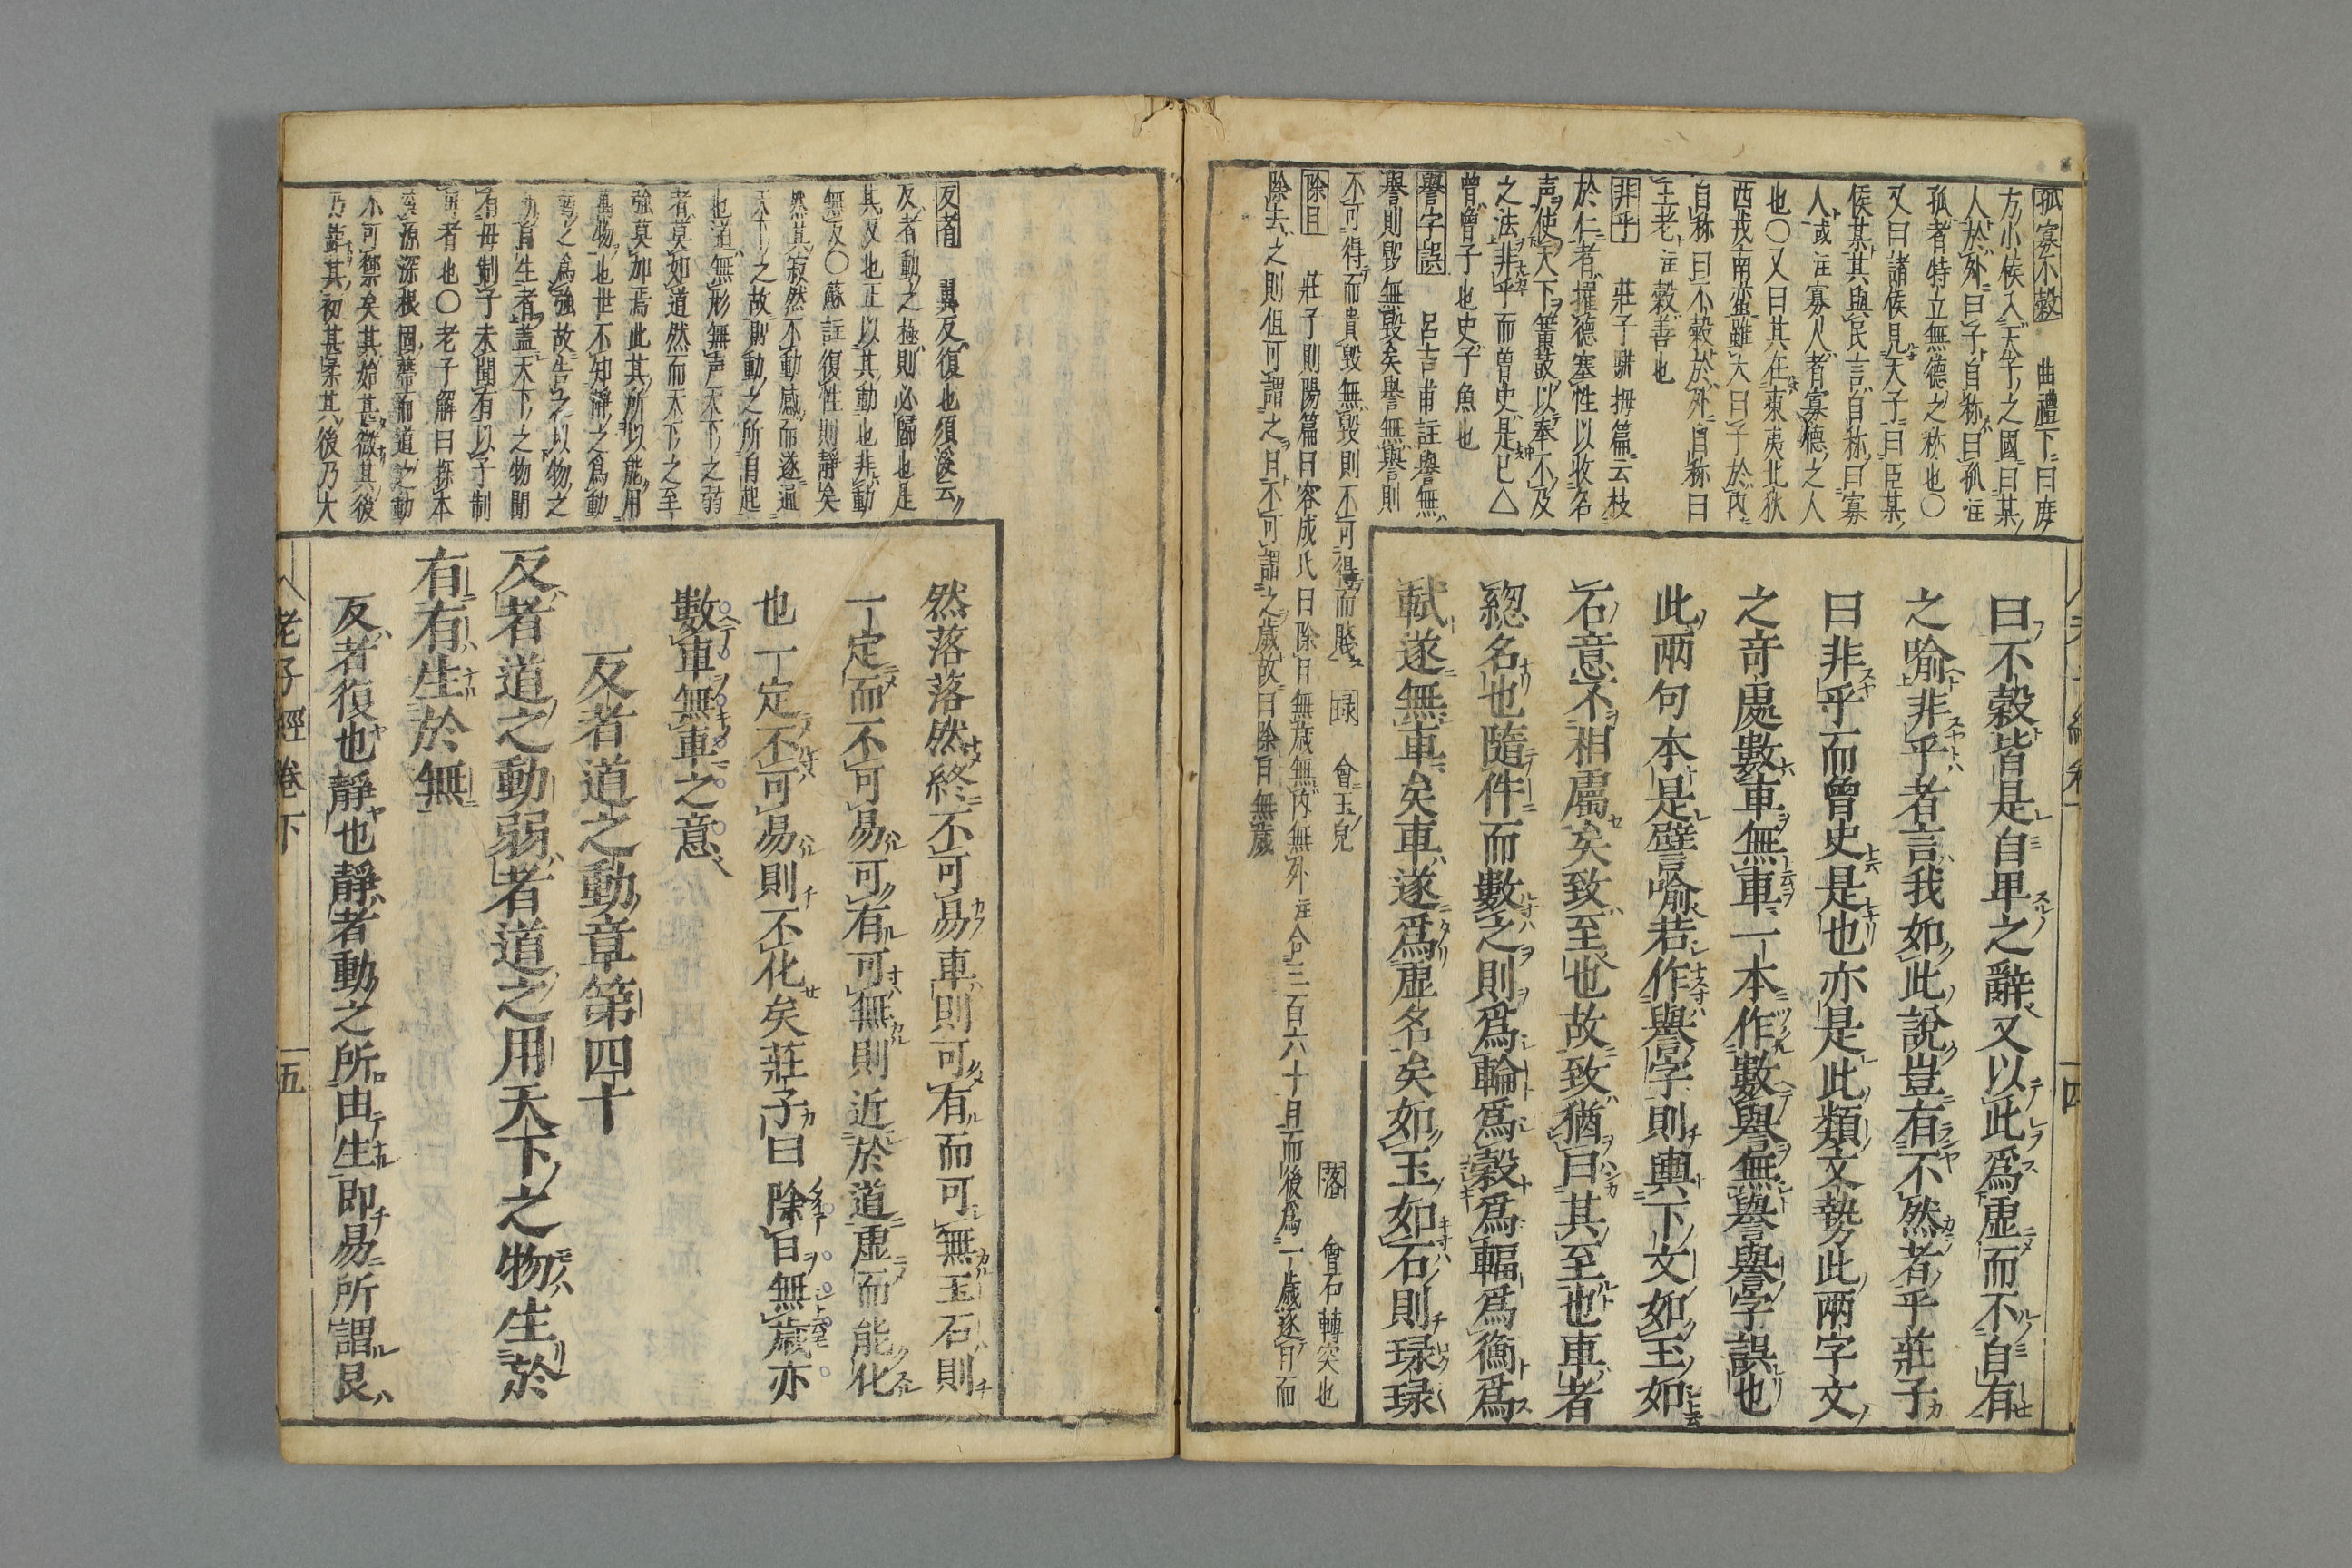 孤寡不穀 曲禮下曰庶
方小侯入天子之國曰某
人於外曰子自称曰孤注
孤者特立無德之称也〇
又曰諸侯見天子曰臣某
侯某其與民言自称曰寡
人或注寡人者寡德之人
也〇又曰其在東夷北狄
西戎南蛮雖大曰子於内
自称曰不穀於外自称曰
王老注穀善也
非乎 莊子駢拇篇云枝
於仁者擢德塞性以收名
声使天下簧鼓以奉不及
之法非乎而曽史是已△
曽曽子也史子魚也
譽字誤 呂吉甫註譽無
譽則毀無毀矣譽無譽則
不可得而貴毀無毀則不可得而賤 琭 會玉皃 落 會石轉突也
除日 莊子則陽篇曰容成氏曰除日無歳無内無外注合三百六十日而後為一歳逐日而
除去之則但可謂之日不可謂之歳故曰除日無歳
曰不穀皆是自卑之辭又以此爲虚而不自有
之喻非乎者言我如此說豈有不然者乎莊子
曰非乎而曾史是也亦是此類文勢此兩字文
之竒處數車無車一本作數譽無譽譽字誤也
此兩句本是譬喻若作譽字則與下文如玉如
石意不相屬矣致至也故致猶曰其至也車者
緫名也隨件而數之則爲輪爲轂爲輻爲衡爲
軾遂無車矣車遂爲虚名矣如玉如石則琭琭
四
反者 翼反復也須溪云
反者動之極則必歸也是
其反也正以其動也非動
無反〇蘇註復性則静矣
然其寂然不動感而遂通
天下之故則動之所自起
也道無形無声天下之弱
者莫如道然而天下之至
強莫加焉此其所以能用
萬物也世不知静之爲動
弱之爲強故告之以物之
所自生者蓋天下之物聞
有母制子未聞有以子制
母者也〇老子解曰探本
窮源深根固蔕而道之動
不可禦矣其始甚微其後
乃甚其初甚柔其後乃大
然落落然終不可易車則可有而可無玉石則
一定而不可易可有可無則近於道虚而能化
也一定不可易則不化矣莊子曰除日無歳亦
數車無車之意
反者道之動章第四十
反者道之動弱者道之用天下之物生於
有有生於無
反者復也靜也靜者動之所由生即易所謂艮
老子經卷下
五